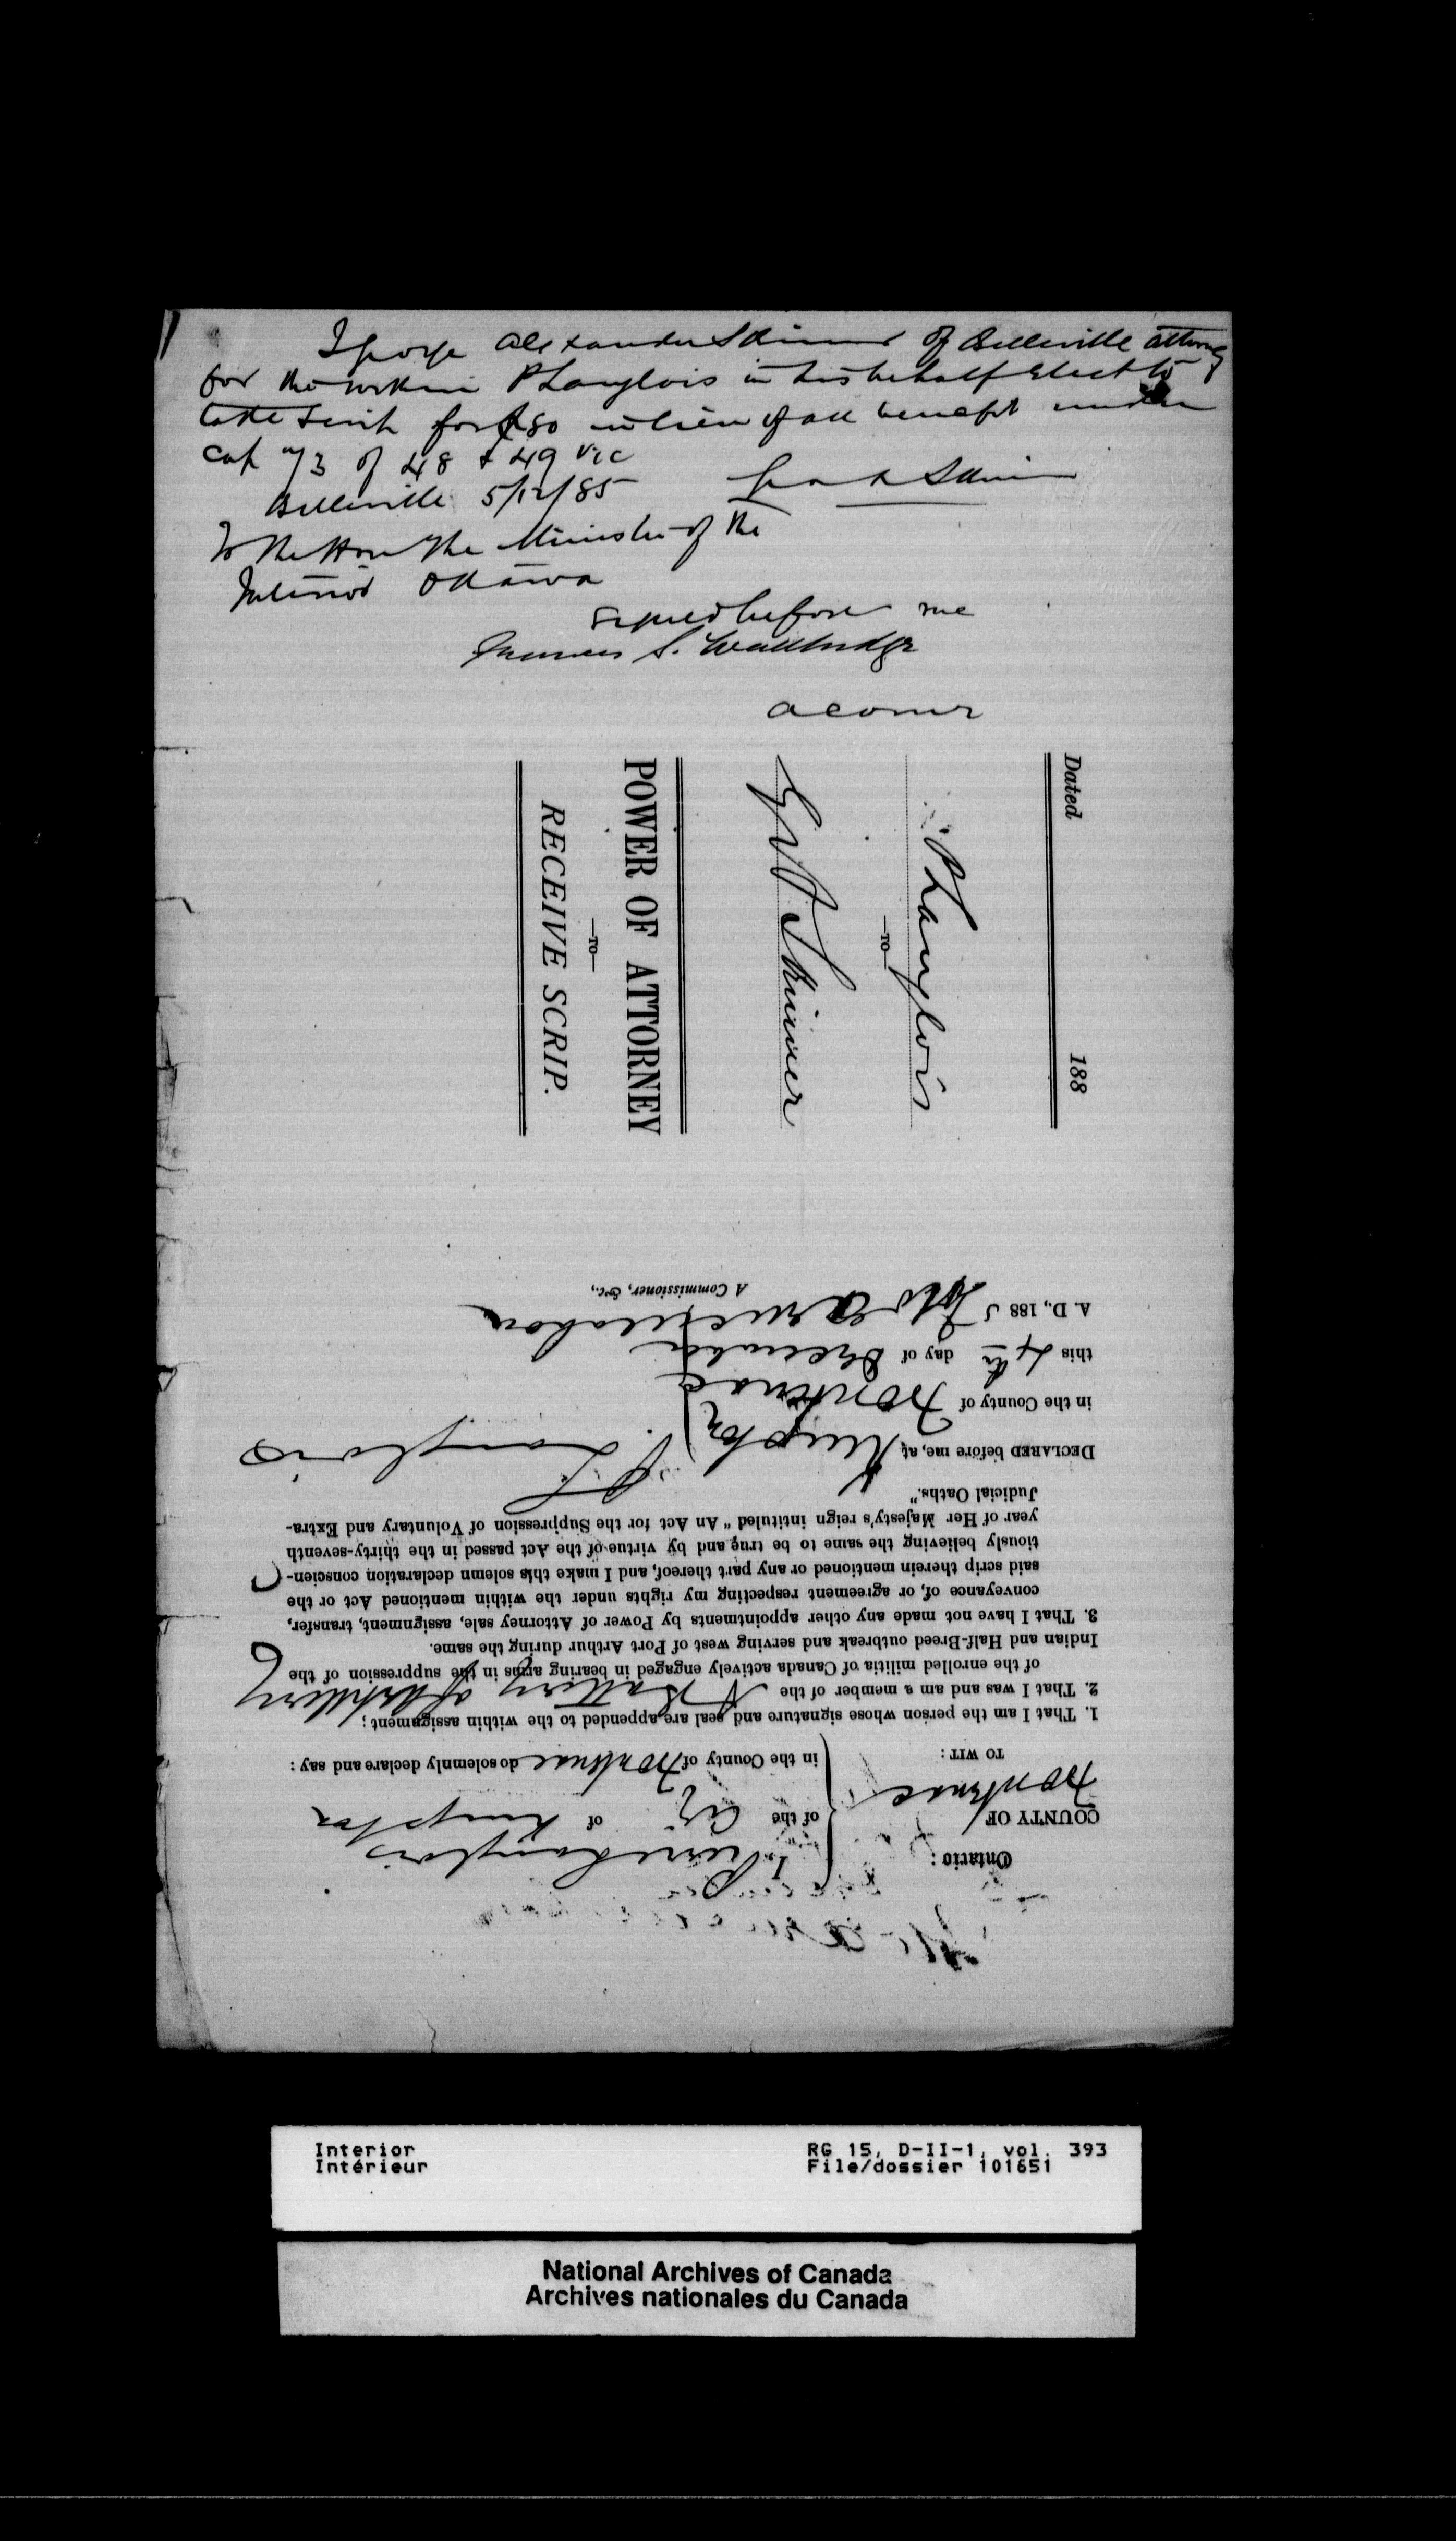 I George Alexander Skinner of Belleville attorney
for the within P Langlois in his behalf elect to
take scrip for $80 in lieu of all benefit under
Cap 73 of 48 & 49 Vic
Belleville 5/12/85
Geo A Skinner
To the Hon the Minister of the
Interior Ottawa
Signed before me
S. Wallbridge
a comr
Dated 188
P Langlois
—TO—
G A Skinner
POWER OF ATTORNEY
—TO—
RECEIVE SCRIP.
Ontario:
COUNTY OF
Frontenac
TO WIT:
I, Pierre Langlois
of the City of Kingston
in the County of Frontenac do solemnly declare and say:
1. That I am the person whose signature and seal are appended to the within assignment;
2. That I was and am a member of the A Battery of Artillery
of the enrolled militia of Canada actively engaged in bearing arms in the suppression of the
Indian and Half-Breed outbreak and serving west of Port Arthur during the same.
3. That I have not made any other appointments by Power of Attorney sale, assignment, transfer,
conveyance of, or agreement respecting my rights under the within mentioned Act or the
said scrip therein mentioned or any part thereof, and I make this solemn declaration conscien-
tiously believing the same to be true and by virtue of the Act passed in the thirty-seventh
year of Her Majesty's reign intituled "An Act for the Suppression of Voluntary and Extra-
Judicial Oaths."
DECLARED before me, at Kingston
in the County of Frontenac
this 4th day of December
A. D., 188 5
P. Langlois
A Commissioner, &c.,
Interior
Intérieur
RG 15, D-II-1, vol. 393
File/dossier 101651
National Archives of Canada
Archives nationales du Canada